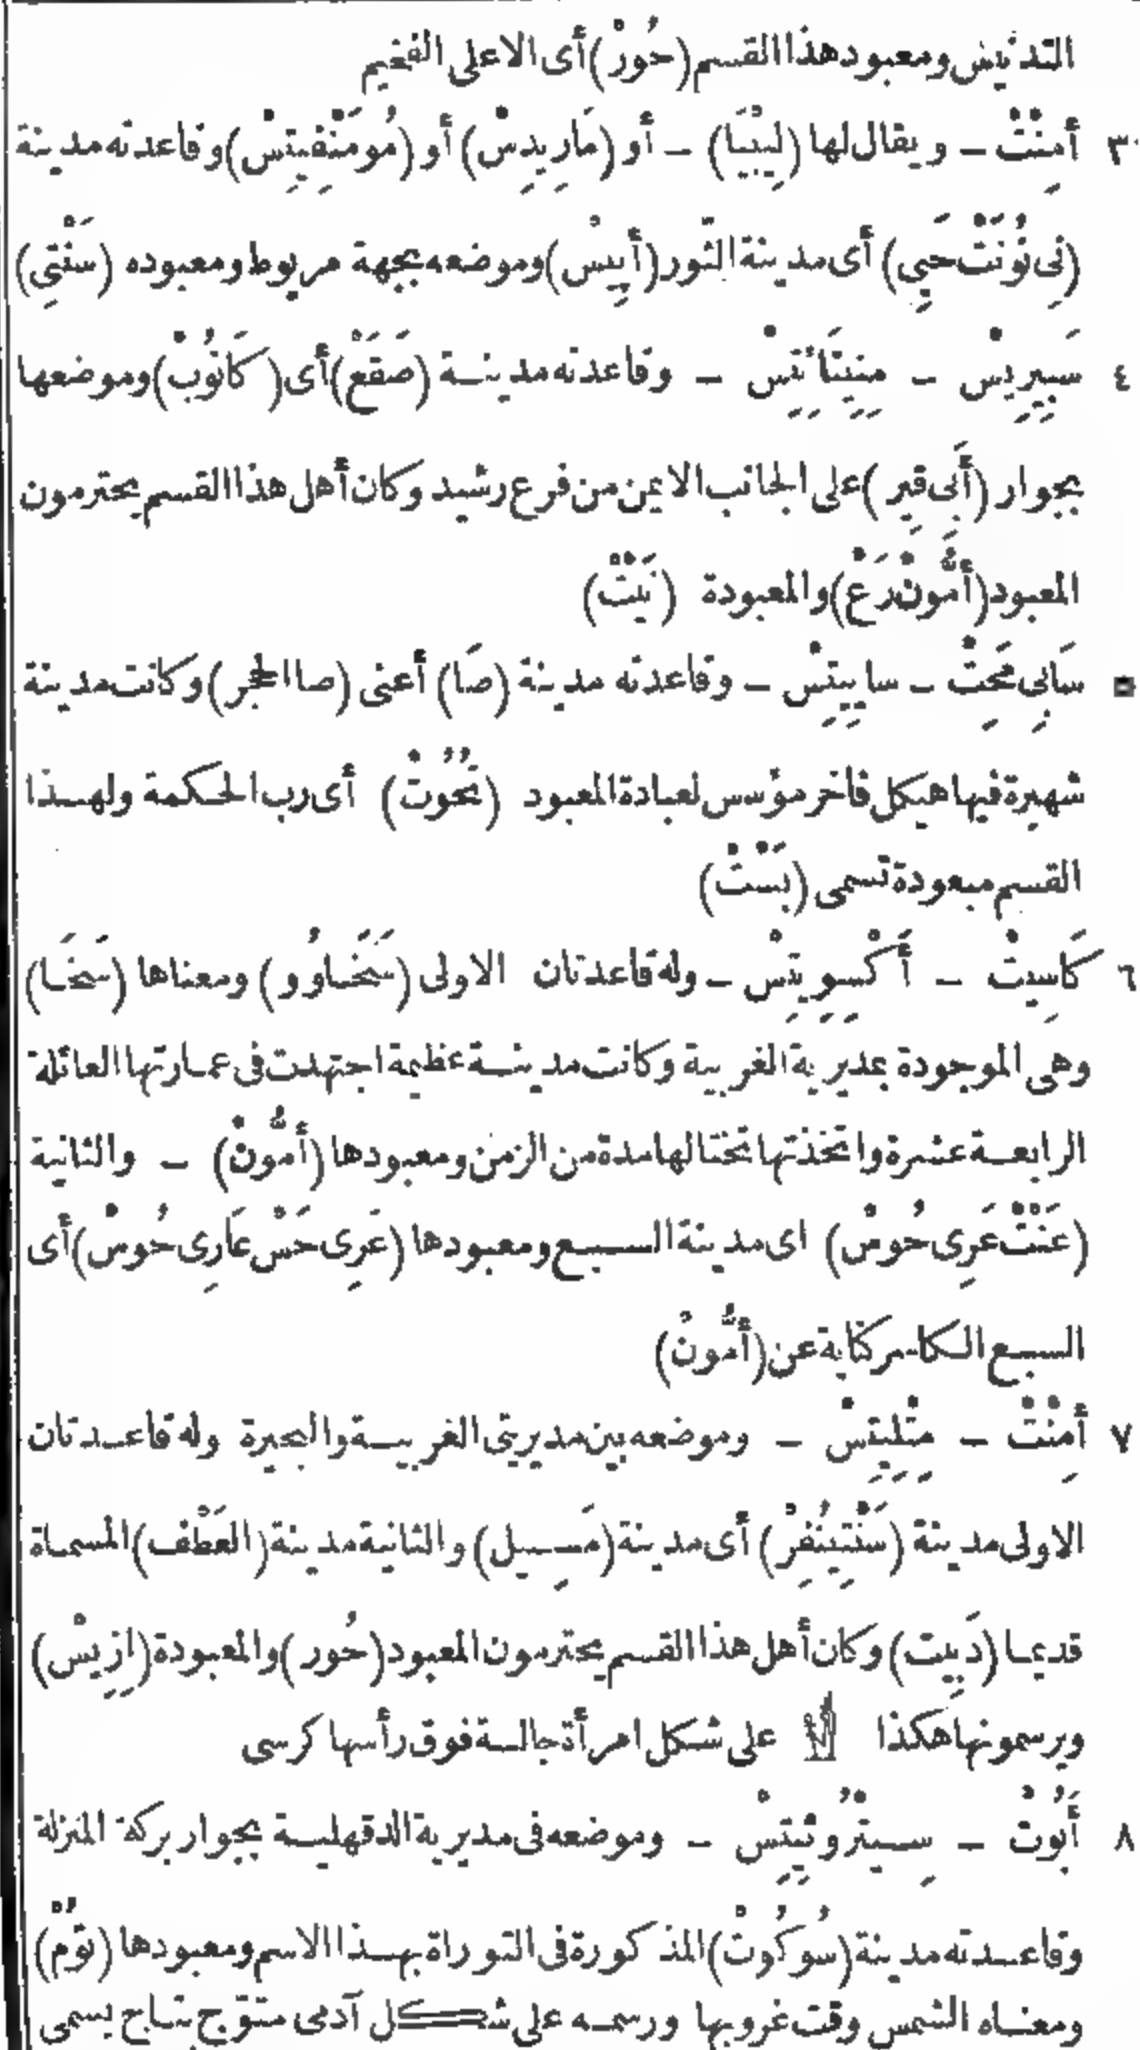 التدنيس ومعبود هذا القسم (حُورْ) أى الاعلى الفخيم
٣ أَمِنْتْ - ويقال لها (لِيبْيَا) - أو (مَارِيدِسْ) أو (مُومَنْفِيتِسْ) وقاعدته مدينة
(نِى نُونَتْ حَپِى) أى مدينة الثّور (أَپِيسْ) وموضعه بجهة مريوط ومعبوده (سَنْتِى)
٤ سَپِيرِيسْ - مِنِيتَائِيتِسْ - وقاعدته مدينة (صَقَعْ) أى (كَانُوبْ) وموضعها
بجوار (أَبى قِير) على الجانب الايمن من فرع رشيد وكان أهل هذا القسم يحترمون
المعبود (أَمُّونْ رَعْ) والمعبودة (نَيْتْ)
٥ سَابِى مَحِتْ - سايِيتِسْ - وقاعدته مدينة (صَا) أعنى (صا الحجر) وكانت مدينة
شهيرة فيها هيكل فاخر مؤسس لعبادة المعبود (تُحُوتْ) أى رب الحكمة ولهذا
القسم مبعودة تسمى (بَسْتْ)
٦ كَاسِيتْ - أَكْسِوِيتِسْ - وله قاعدتان الاولى (سَخَاوُو) ومعناها (سَخَا)
وهى الموجودة بمديرية الغربية وكانت مدينة عظيمة اجتهدت فى عمارتها العائلة
الرابعة عشرة واتخذتها تختا لها مدة من الزمن ومعبودها (أَمُّونْ) - والثانية
(عَنْتْ عَرِى حُوسْ) اى مدينة السبع ومعبودها (عَرِى حَسْ عَارِى حُوسْ) أى
السبع الكاسر كناية عن (أَمُّونْ)
٧ أَمِنْتْ - مِتْلِيتِسْ - وموضعه بين مديريتى الغربية والبحيرة وله قاعدتان
الاولى مدينة (سَنْتِينُفِرْ) أى مدينة (مَسِيل) والثانية مدينة (العَطْف) المسماة
قديما (دَبِيت) وكان أهل هذا القسم يحترمون المعبود (حُور) والمعبودة (ازِيسْ)
ويرسمونها هكذا على شكل امرأة جالسة فوق رأسها كرسى
٨ أَبُوتْ - سِيتْرُوِيتِسْ - وموضعه فى مديرية الدقهلية بجوار بركة المنزلة
وقاعدته مدينة (سُوكُوتْ) المذكورة فى التوراة بهذا الاسم ومعبودها (تُوُمْ)
ومعناه الشمس وقت غروبها ورسمه على شكل آدمى متوّج بتاج يسمى